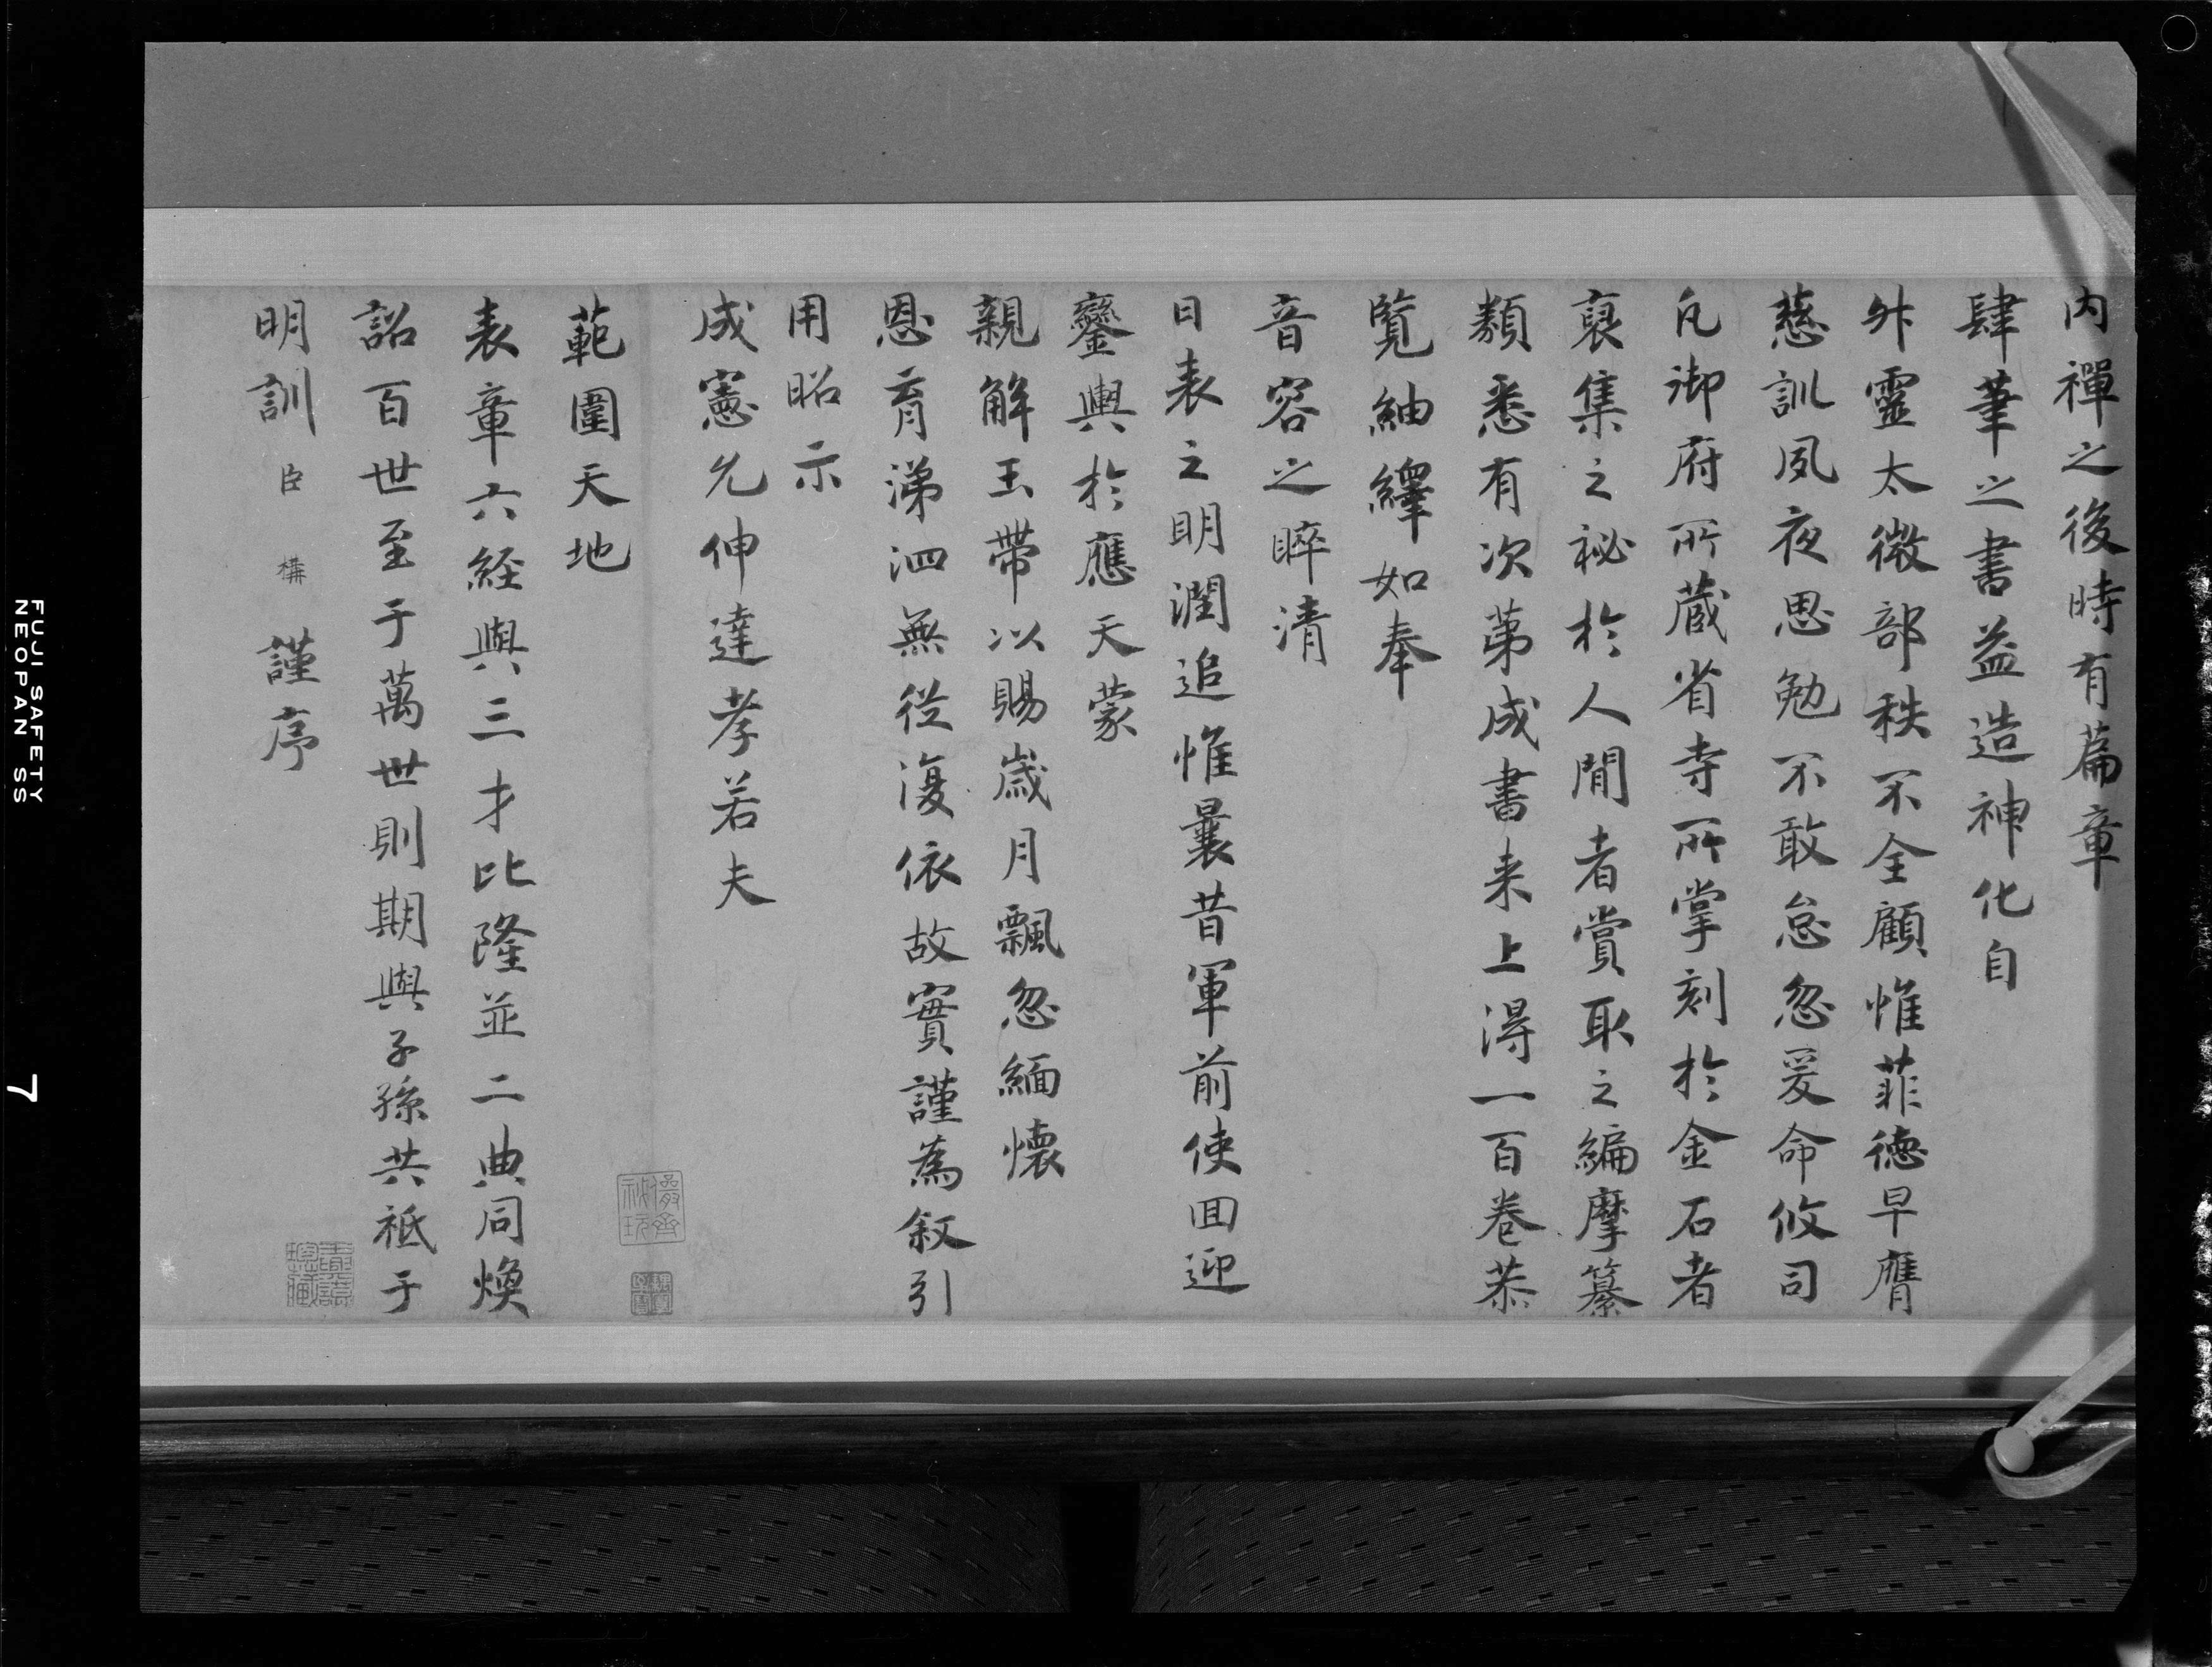 内禪之後時有篇章
肆筆之書益造神化自
外靈太微部秩不全顧惟菲德早膺
慈訓夙夜思勉不敢怠忽爰命攸司
凡御府所蔵省寺所掌刻於金石者
裒集之祕於人間者賞取之編摩纂
類悉有次苐成書来上得一百卷恭
覧紬繹如奉
音容之睟清
日表之明潤追惟曩昔軍前使囬迎
鑾輿於應天蒙
親解玉帶以賜歲月飄忽緬懐
恩育涕泗無從復依故實謹為叙引
用昭示
成憲允伸達孝若夫
範圍天地
表章六経與三才比隆並二典同煥
詔百世至于萬世則期與子孫共祗于
明訓臣構謹序
FUJI SAFETY
NEOPAN SS
7